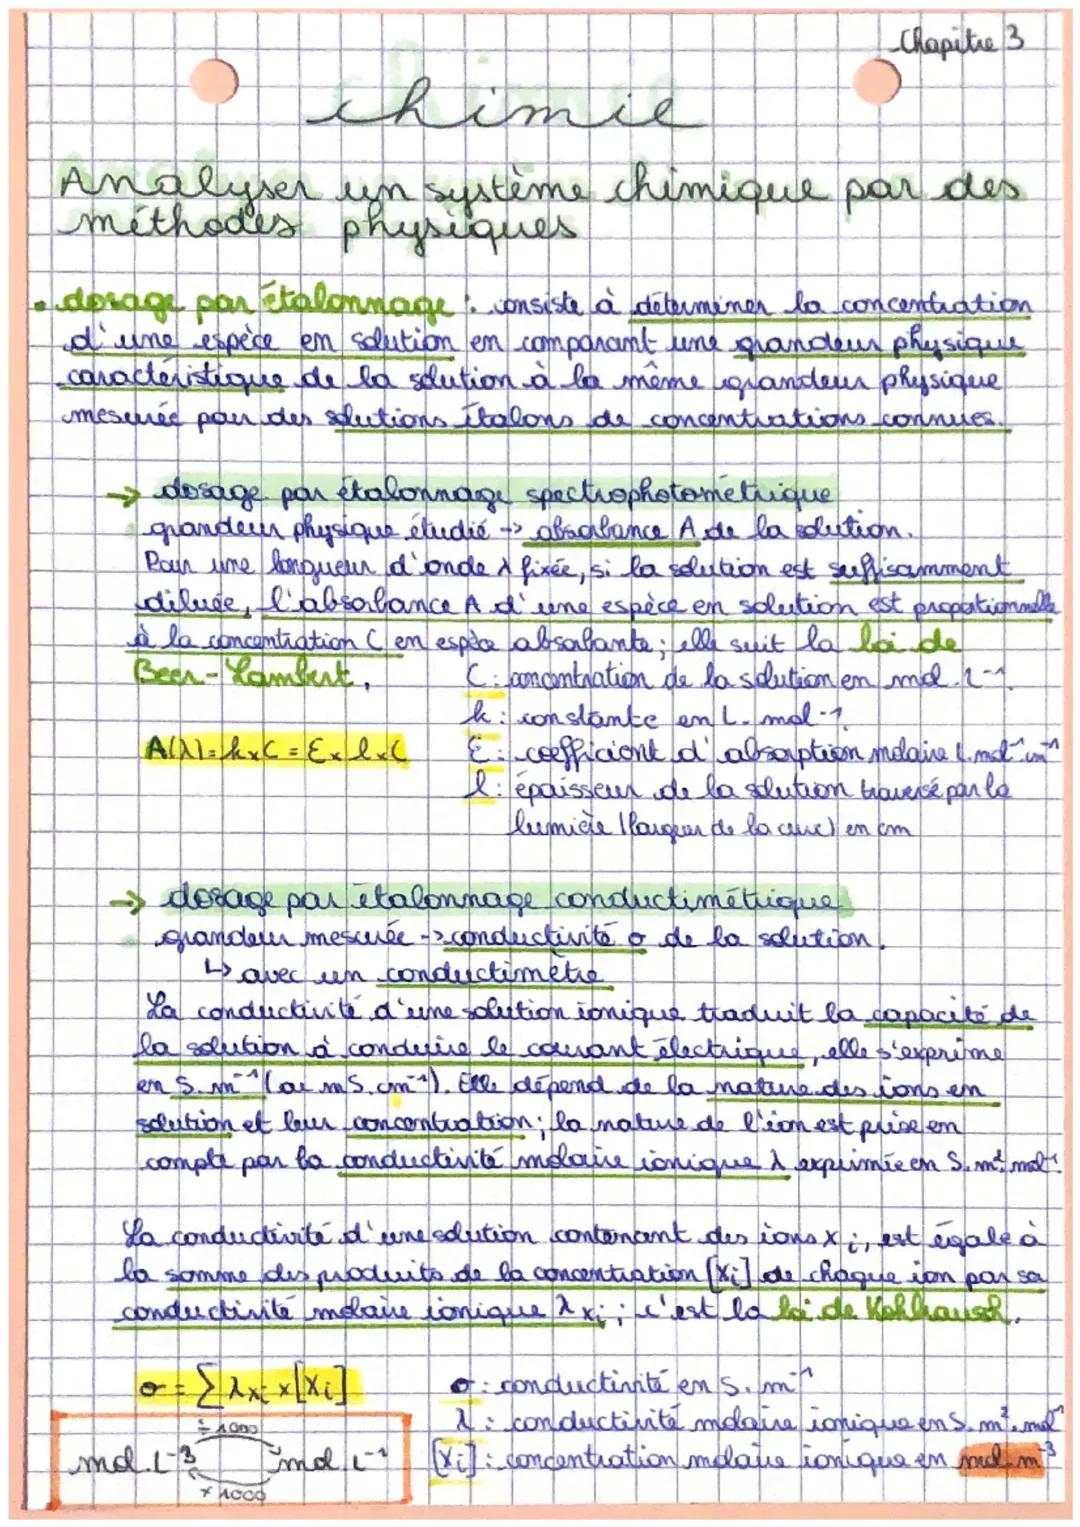 Chapitre 3
chimie
Analyser un système chimique par des
méthodes physiques
• dosage par étalonnage : consiste à déterminer la concentration
d'une espèce en solution en comparant une grandeur physique
caractéristique de la solution à la même grandeur physique
mesurée par des solutions étalons de concentrations connues.
→ dosage par étalonnage spectrophotométrique
grandeur physique étudié → absorbance A de la solution.
Pour une longueur d'onde λ fixée, si la solution est suffisamment
diluée, l'absorbance A d'une espèce en solution est proportionnelle
à la concentration C en espèce absorbante ; elle suit la loi de
Beer-Lambert.
C : concentration de la solution en mol.L⁻¹
k : constante en L.mol⁻¹
A(λ) = k x C = Ɛ x l x C
Ɛ : coefficient d'absorption molaire L.mol⁻¹cm⁻¹
l : épaisseur de la solution traversé par la
lumière (largeur de la cuve) en cm
→ dosage par étalonnage conductimétrique
grandeur mesurée → conductivité σ de la solution.
↳ avec un conductimètre
La conductivité d'une solution ionique traduit la capacité de
la solution à conduire le courant électrique, elle s'exprime
en S.m⁻¹ (ou mS.cm⁻¹). Elle dépend de la nature des ions en
solution et leur concentration ; la nature de l'ion est prise en
compte par la conductivité molaire ionique λ exprimée en S.m².mol⁻¹
La conductivité d'une solution contenant des ions Xi, est égale à
la somme des produits de la concentration [Xi] de chaque ion par sa
conductivité molaire ionique λxi ; c'est la loi de Kohlrausch.
σ = ∑ λxi x [Xi]
σ : conductivité en S.m⁻¹
λ : conductivité molaire ionique en S.m².mol⁻¹
[Xi] : concentration molaire ionique en mol.m⁻³
÷ 1000
mol.L⁻³ mol.L⁻¹
x 1000